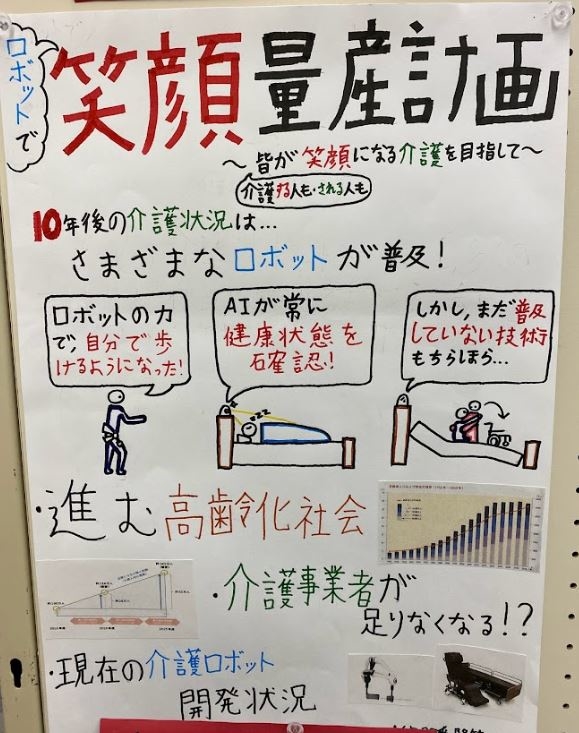 ロボットで
笑顔量産計画
～皆が笑顔になる介護を目指して～
介護する人も・される人も
10年後の介護状況は…
さまざまなロボットが普及！
ロボットの力
で、自分で歩
けるようになった！
AIが常に
健康状態を
確認！
しかし、まだ普及
していない技術
もちらほら…
zzz
・進む高齢化社会
・介護事業者が
足りなくなる！？
・現在の介護ロボット
開発状況